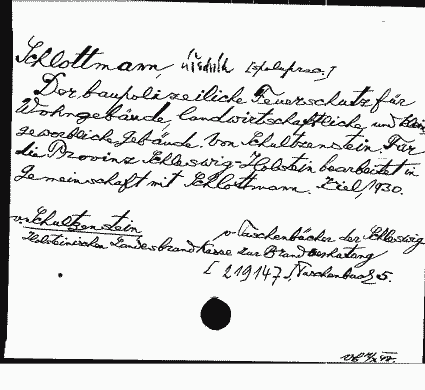 Schlottmann, [spoluprac.]
Der baupolizeiliche Feuerschutz für
Wohngebäude, landwirtschaftliche und klein
gewerbliche Gebäude. Von Schultzenstein. Für
die Provinz Schleswig-Holstein bearbeitet in
Gemeinschaft mit Schlottmann. Kiel, 1930.
v. Schultzenstein v Taschenbücher der Schleswig
Holsteinischen Landesbrandkasse zur Brandverhütung
[219147], Taschenbuch 5.